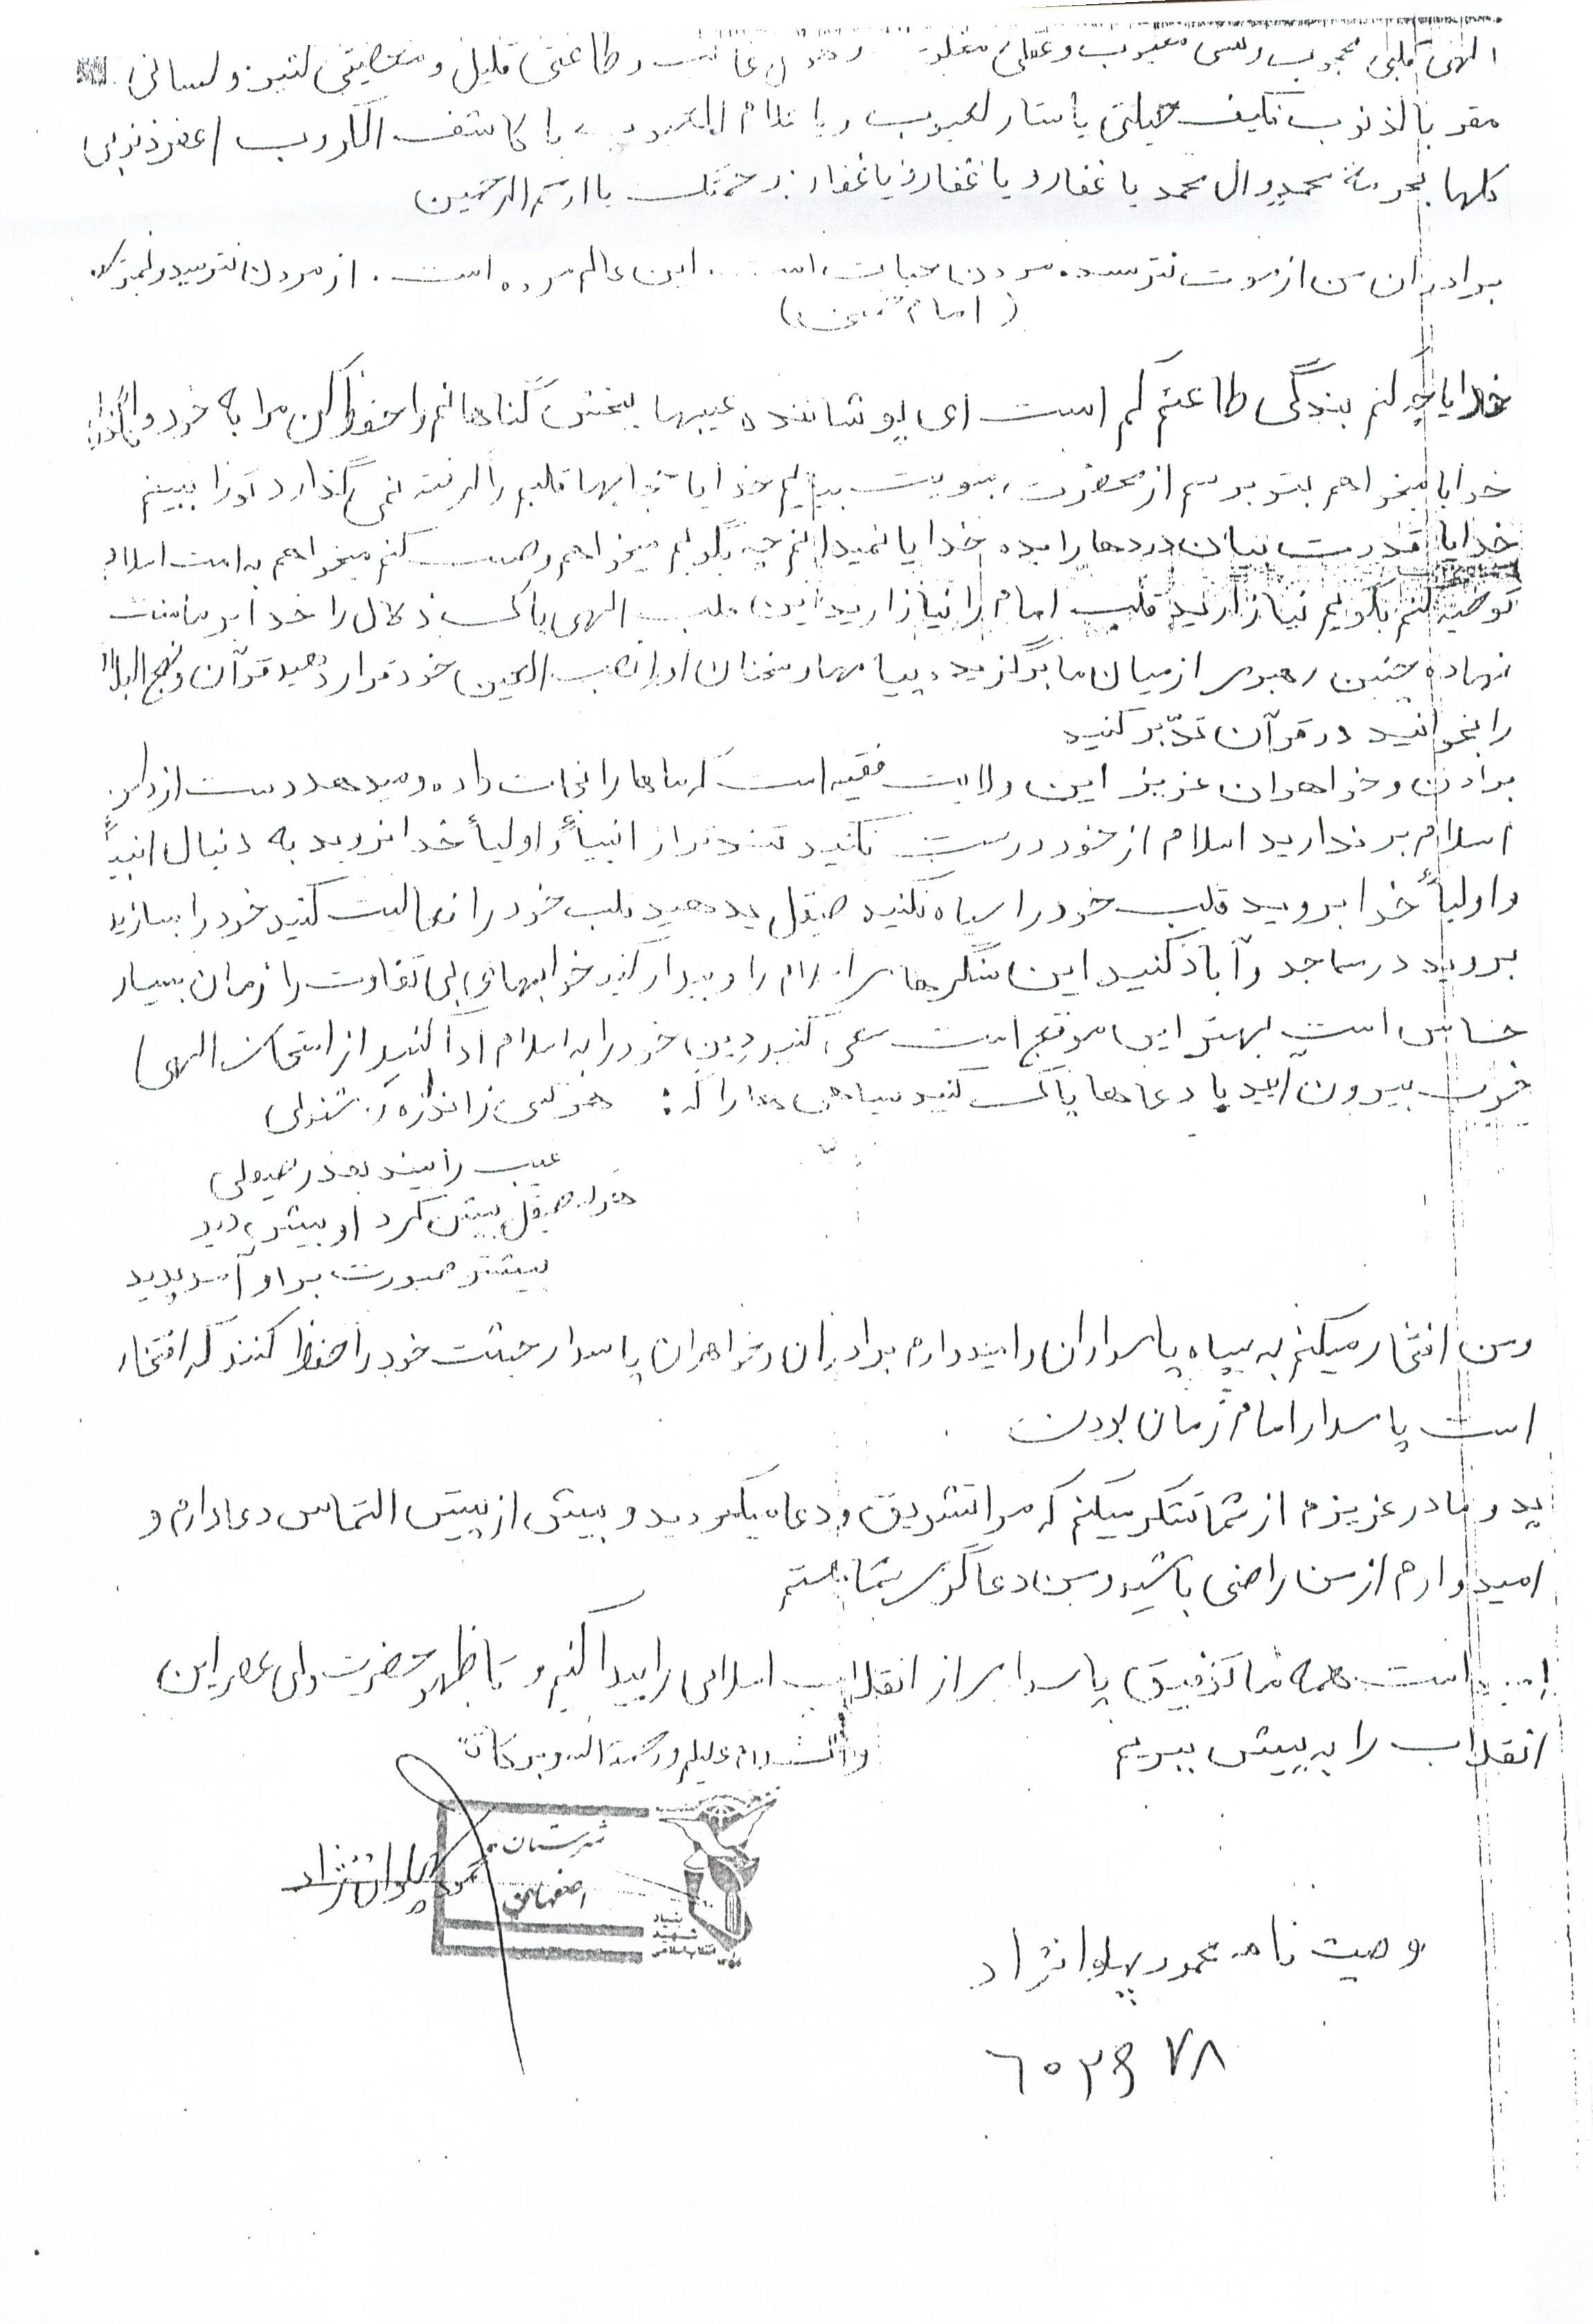 الهی قلبی محجوب و نفسی معیوب و عقلی مغلوب و طاعتی قلیل و معصیتی کثیر و لسانی
مقر بالذنوب فکیف حیلتی یا ستار لعیوب و یا علام الغیوب یا کاشف الکروب اغفر ذنوبی
کلها بحرمة محمد و ال محمد یا غفار و یا غفار و یا غفار برحمتک یا ارحم الرحمین
برادران من از موت نترسید مردن حیات است این عالم مرده است . از مردن نترسید
(امام خمینی)
خدایا چه کنم بندگی طاعتم کم است ای پوشاننده عیبها ببخش گناهانم را حفظ کن مرا به خود وا
خدایا میخواهم بتو برسم از خدایا حجابها قلبم را گرفته نمی گذارد تو را ببینم
خدایا قدرت بیان دردها را بده خدایا نمیدانم چه بگویم میخواهم وصیت کنم میخواهم به امت اسلام
توصیه کنم بگویم نیازارید قلب امام را نیازارید این قلب الهی پاک زلال را خدا بر ما منت
نهاده چنین رهبری از میان ما برگزیده پیامها و سخنان او را نصب العین خود قرار دهید قرآن و نهج البلا
را بخوانید در قرآن تدّبر کنید
برادرن و خواهران عزیز این ولایت فقیه است که ماها را نجات داده و میدهد دست از دامن
اسلام بر ندارید اسلام از خود درست نکنید تندتر از انبیأ و اولیأ خدا نروید به دنبال انبیأ
و اولیأ خدا بروید قلب خود را سیاه نکنید صیقل بدهید قلب خود را فعالیت کنید خود را بسازید
بروید در مساجد و آباد کنید این سنگرهای اسلام را و بیدار کنید خوابهای بی تفاوت را زمان بسیار
حساس است بهترین موقع است سعی کنید دین خود را به اسلام ادا کنید از امتحان الهی
خوب بیرون ایید با دعاها پاک کنید سیاهی ها را که: هر کسی ز اندازه روشندلی
عیب را بیند بقدر صیقلی
هر که صیقل بیش کرد او بیش دید
بیشتر صورت بر او آمد پدید
و من افتخار میکنم به سپاه پاسداران و امیدوارم برادران و خواهران پاسدار حیثیت خود را حفظ کنند که افتخار
است پاسدار امام زمان بودن
پدر و مادر عزیزم از شما تشکر میکنم که مرا تشویق و دعا میکردید و بیش از پیش التماس دعا دارم و
امیدوارم از من راضی باشید و من دعاگوی شما هستم
امید است همه ما توفیق پاسداری از انقلاب اسلامی را پیدا کنیم و تا ظهور حضرت ولی عصر این
انقلاب را به پیش ببریم
والسلام علیکم و رحمة الله و برکاته
شهرستان:
اصفهان
بنیاد
شهید
انقلاب اسلامی
محمود پهلوان نژاد
وصیت نامه محمود پهلوانژاد
٦٠٢٩٧٨